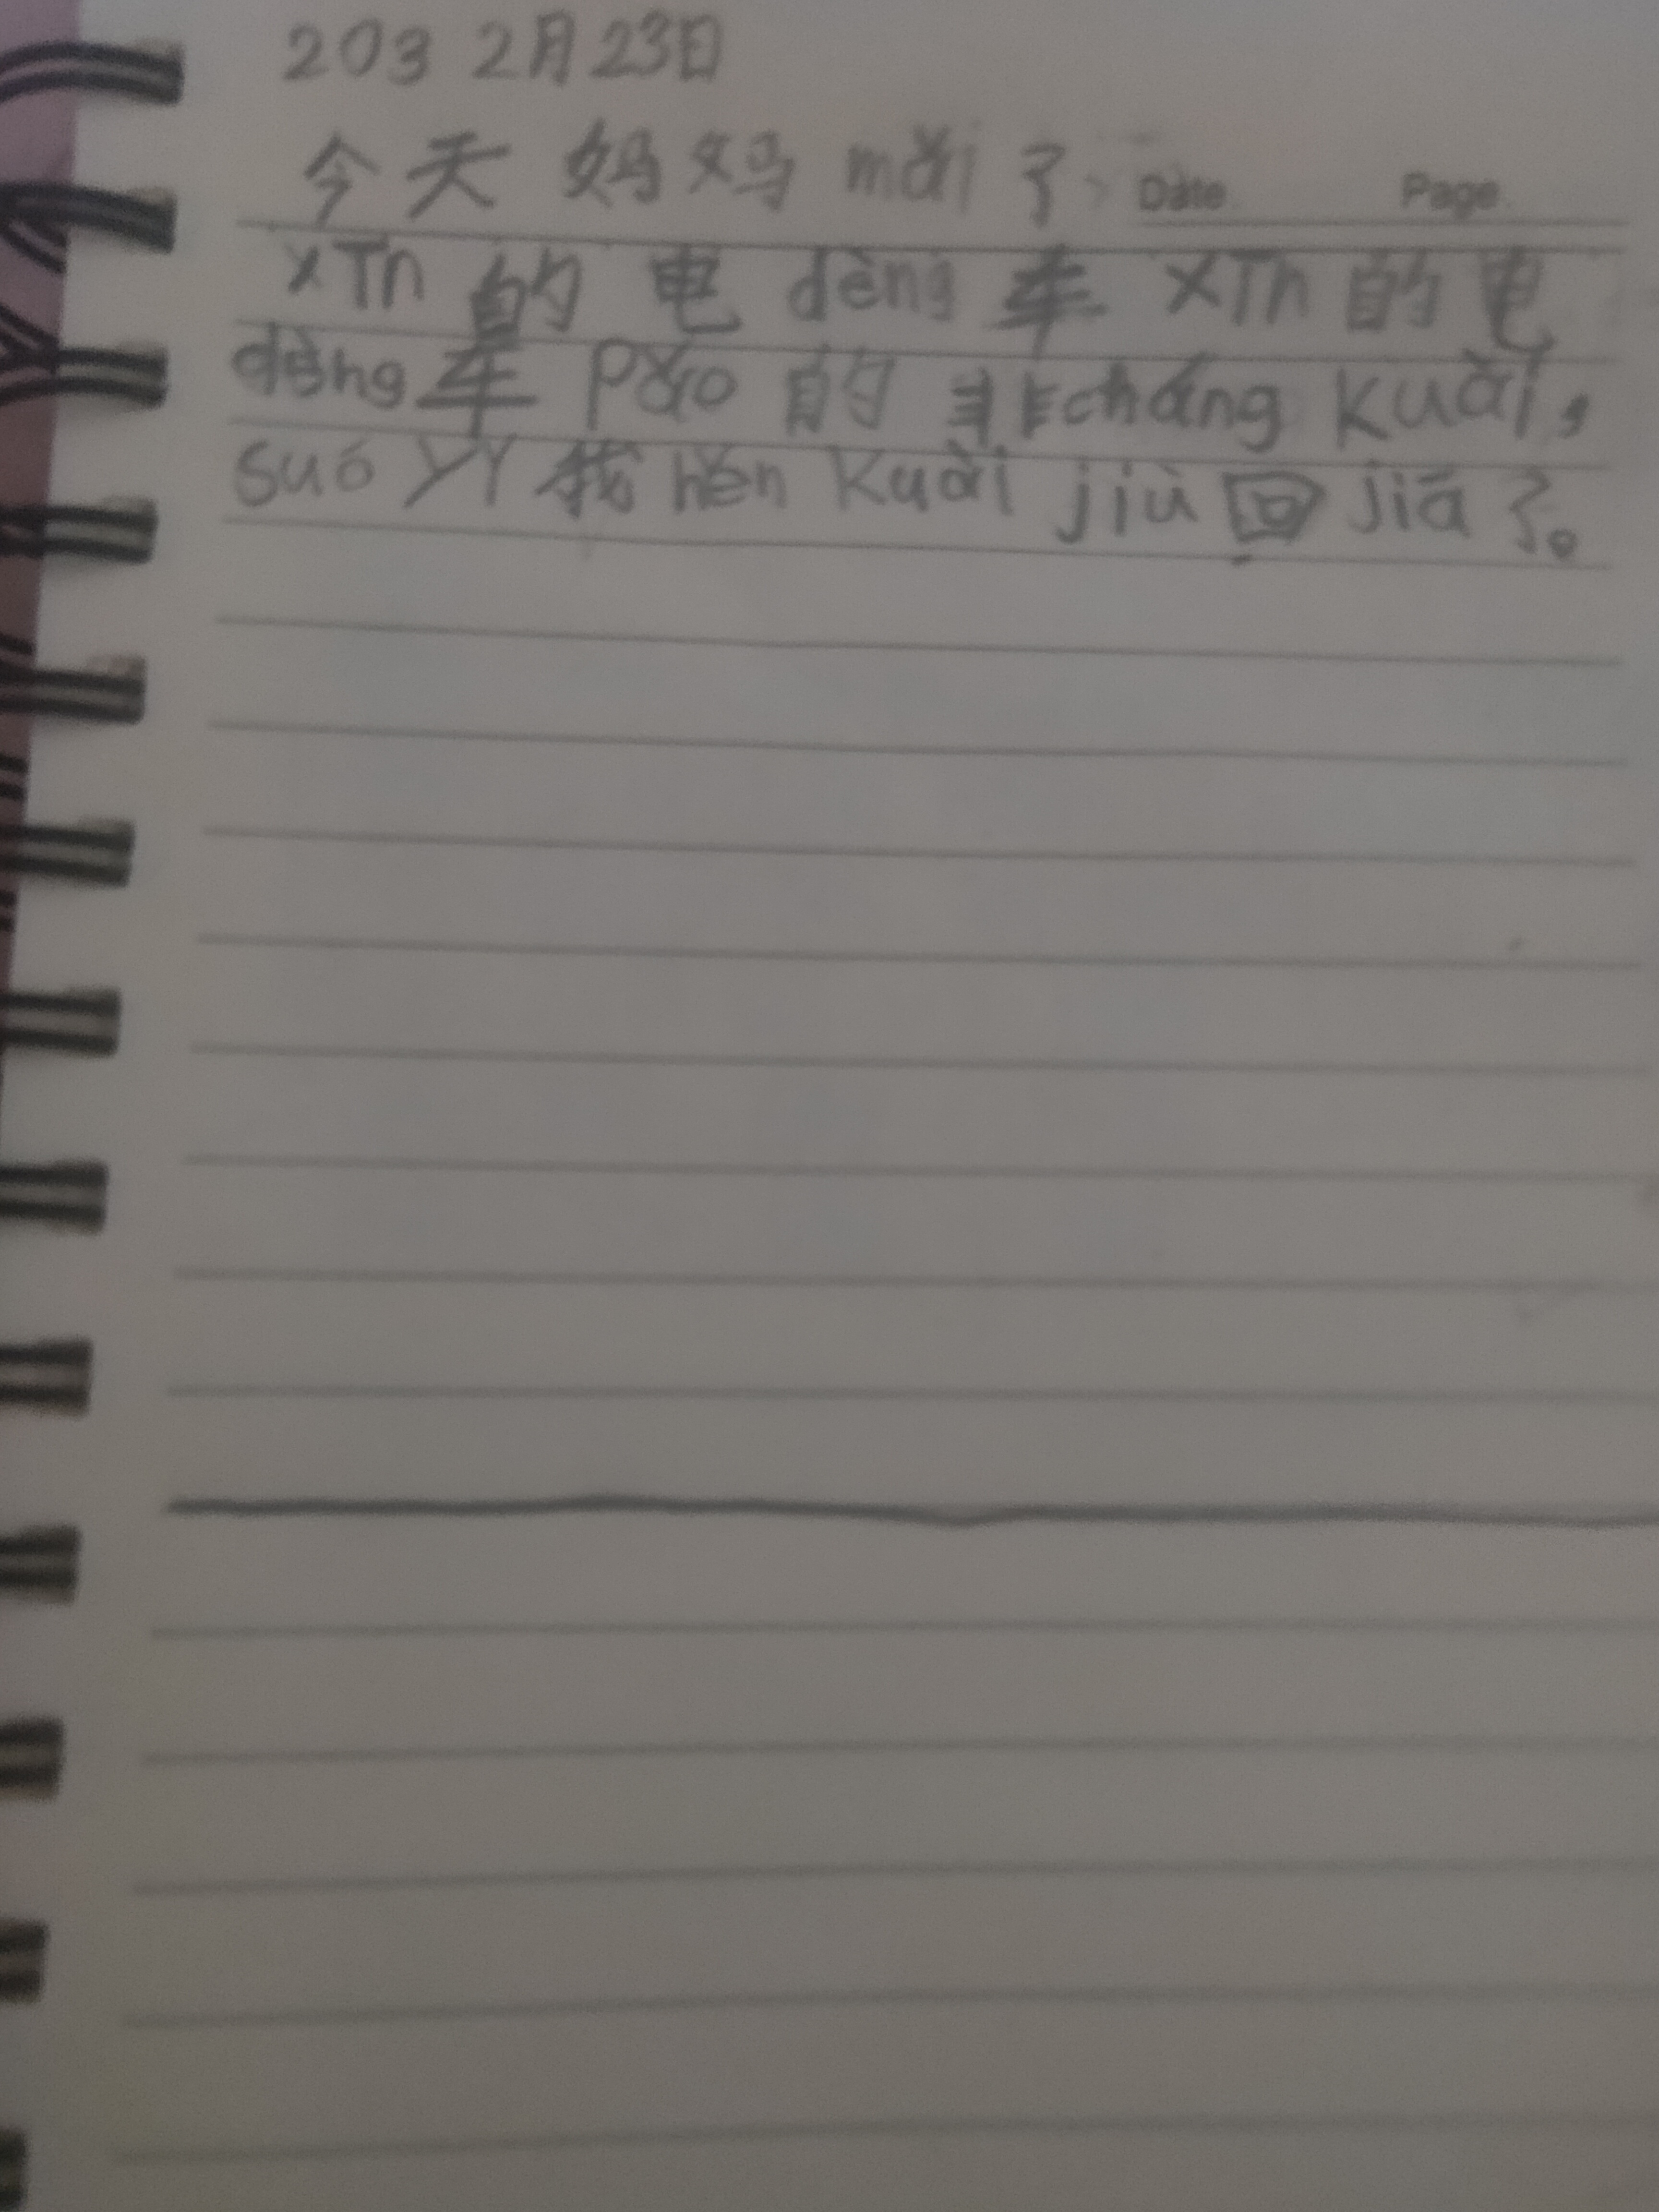 203 2月23日
今天 妈妈 mǎi 了
Date Page
xīn 的 电 dèng 车 xīn 的 电
dòng 车 pǎo 的 非cháng kuài,
suó yǐ 我 hěn kuài jiù 回 jiā 了。